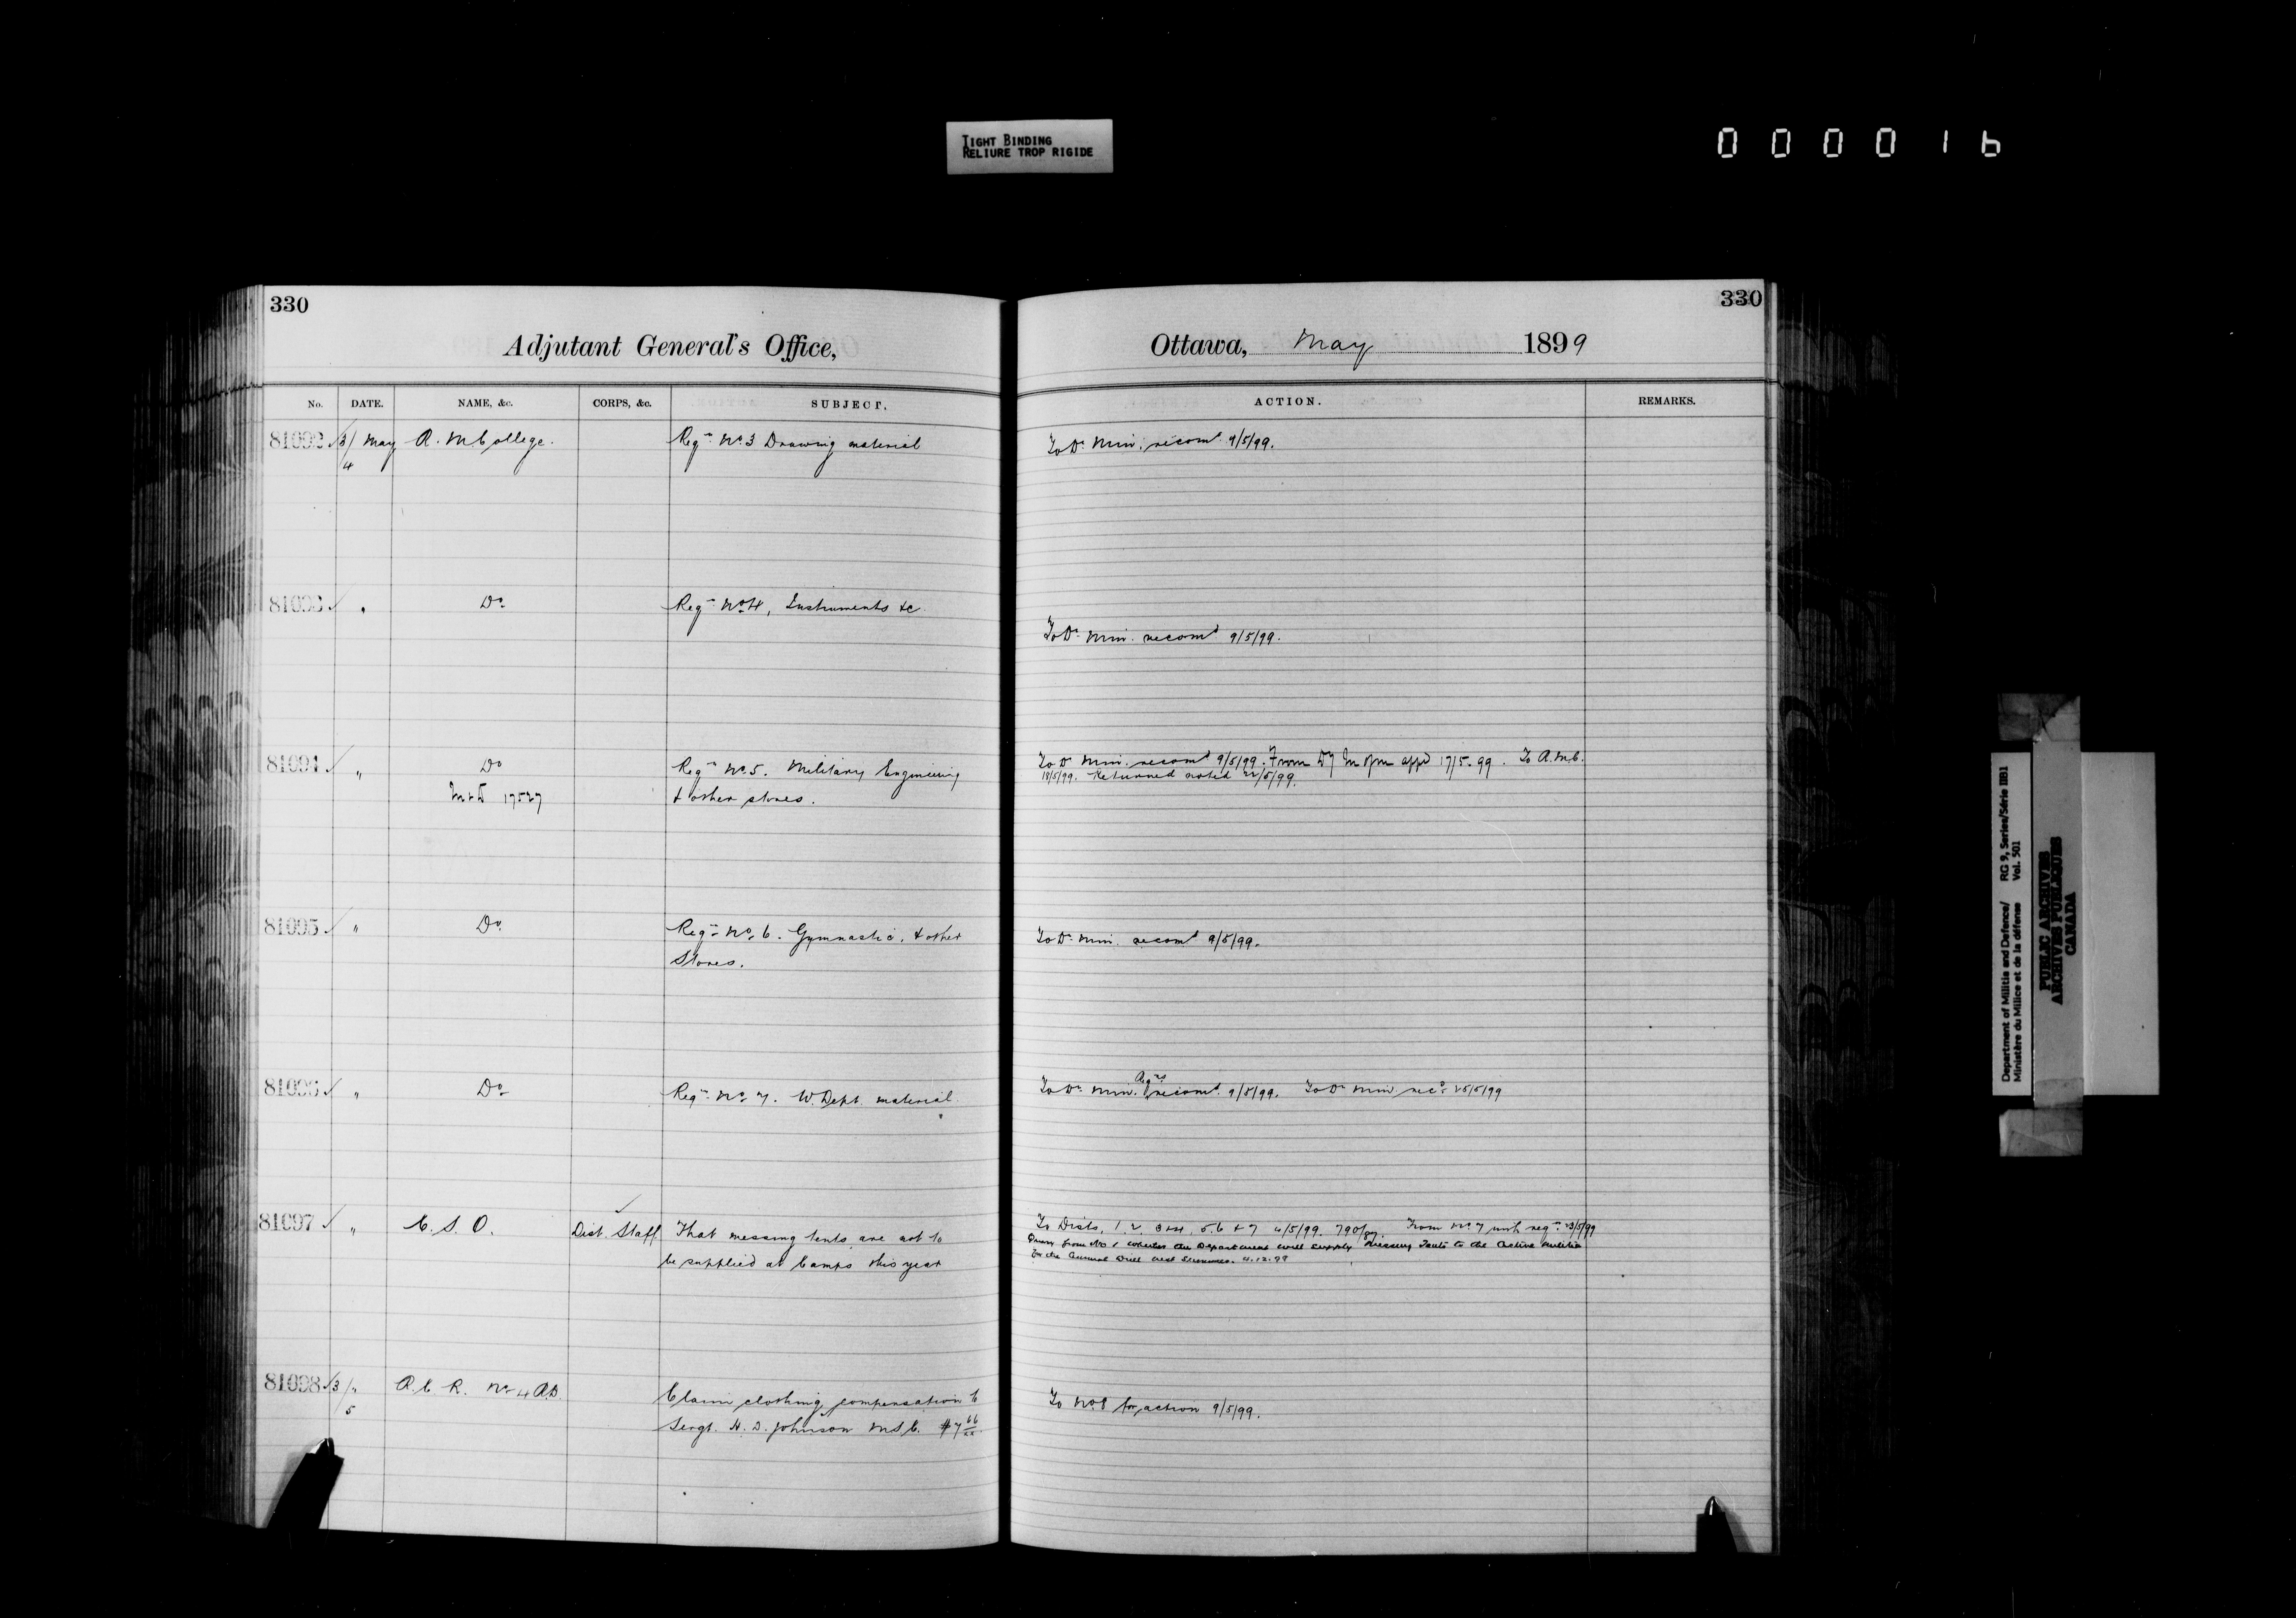 TIGHT BINDING
RELIURE TROP RIGIDE
000016
330
Adjutant General's Office,
No. DATE. NAME, &c. CORPS, &c. SUBJECT.
81092 3/4 May R. M. College. Reqn No 3 Drawing material
81093 " Do Reqn No 4, Instruments &c
81094 " Do Reqn No 5. Military Engineering
M & D 17527 & other stores.
81095 " Do Reqn No 6. Gymnastic, & other
Stores.
81096 " Do Reqn No 7. W. Dept. material
81097 " C. S. O. Dist. Staff That messing tents are not to
be supplied at Camps this year
81098 3/5 " R. C. R. No 4 R.D. Claim clothing compensation to
Sergt. H. D. Johnson M.S.C. $7 66/xx
330
Ottawa, May 1899
ACTION. REMARKS.
To D. Min. recomd 9/5/99.
To D. Min. recomd 9/5/99.
To D. Min. recomd 9/5/99. From Dy appd 17/5.99. To R.M.C.
18/5/99. Returned noted 22/5/99.
To D. Min. recomd 9/5/99.
Reqn
To D. Min. recomd 9/5/99. To D. Min. rec. 25/5/99
To Dists. 1 2, 3 & 4, 5. 6 & 7 4/5/99. From No 7 with reqn
Query from No 1 whether the Department will supply Messing Tents to the Active Militia
for the Annual Drill next Summer. 4.12.99
To No 8 for action 9/5/99.
Department of Militia and Defence/ RG 9, Series/Série IIB1
Ministère du Milice et de la défense Vol. 501
PUBLIC ARCHIVES
ARCHIVES PUBLIQUES
CANADA